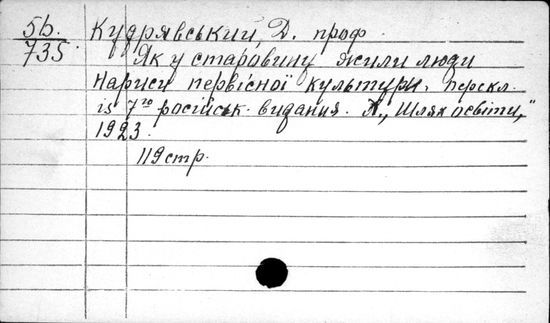 5б.
735.
Кудрявський, Д. проф.
Як у старовину жили люди
Нариси первісної культури. перекл.
із 7го російськ. видання. Х., „Шлях освіти,"
1923.
119 стр.